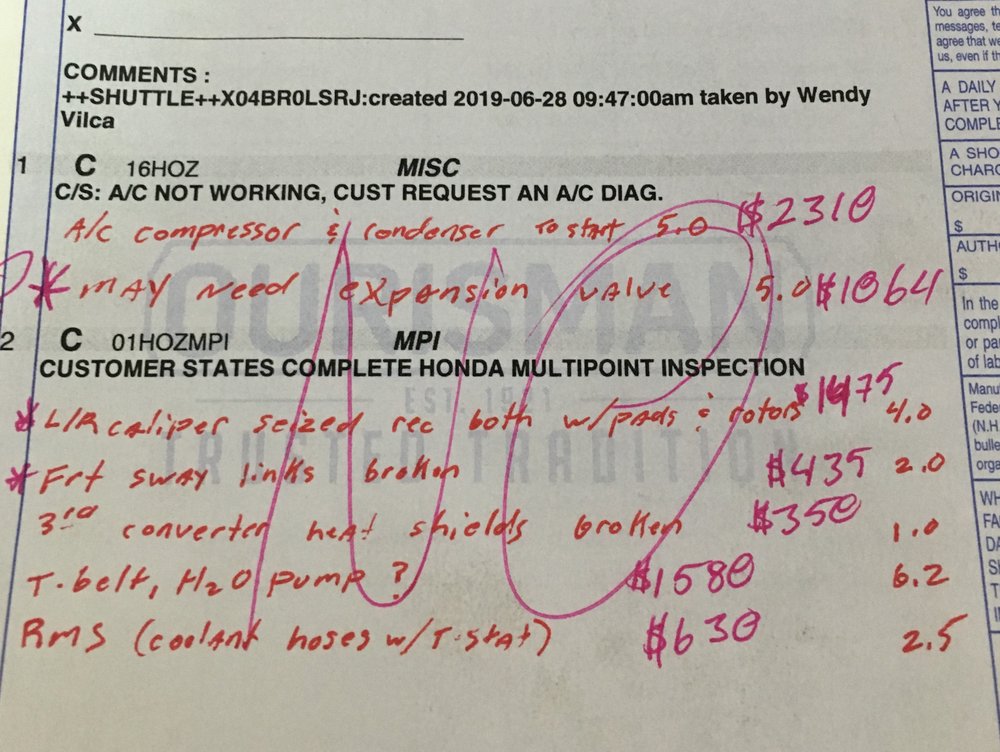 X
COMMENTS :
++SHUTTLE++X04BR0LSRJ:created 2019-06-28 09:47:00am taken by Wendy
Vilca
1 C 16HOZ MISC
C/S: A/C NOT WORKING, CUST REQUEST AN A/C DIAG.
A/c compressor & condenser To start 5.0 $2310
* MAY Need expansion valve 5.0 $1064
OURISMAN
2 C 01HOZMPI MPI
CUSTOMER STATES COMPLETE HONDA MULTIPOINT INSPECTION
EST. 1921
* L/R caliper seized rec both w/pads & rotors $1475 4.0
TRUSTED TRADITION
* Frt sway links broken $435 2.0
3rd converter heat shields broken $350 1.0
T-belt, H2O pump ? $1580 6.2
RMS (coolant hoses w/T-stat) $630 2.5
You agree th
messages, te
agree that we
us, even if th
A DAILY
AFTER Y
COMPLE
A SHO
CHARG
ORIGIN
$
AUTHO
$
In the
compl
or pa
of lab
Manu
Feder
(N.H.
bulle
orga
WH
FA
DA